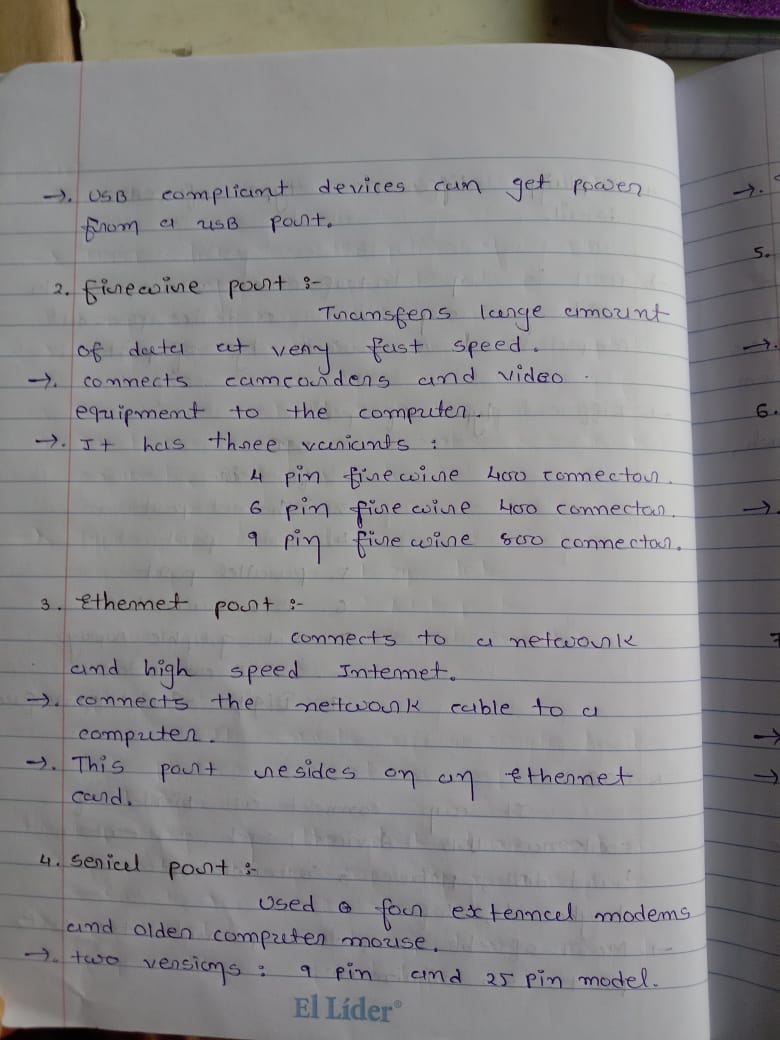 →. USB compliant devices can get power
from a USB port.
2. firewire port :-
Transfers large amount
of data at very fast speed.
→. connects camcorders and video
equipment to the computer.
→. It has three variants :
4 pin firewire 400 connector.
6 pin firewire 400 connector.
9 pin firewire 800 connector.
3. ethernet port :-
connects to a network
and high speed Internet.
→. connects the network cable to a
computer.
→. This port resides on an ethernet
card.
4. serial port :-
Used for external modems
and older computer mouse.
→. two versions : 9 pin and 25 pin model.
El Líder®
→.
5.
→.
6.
→.
7
→
→